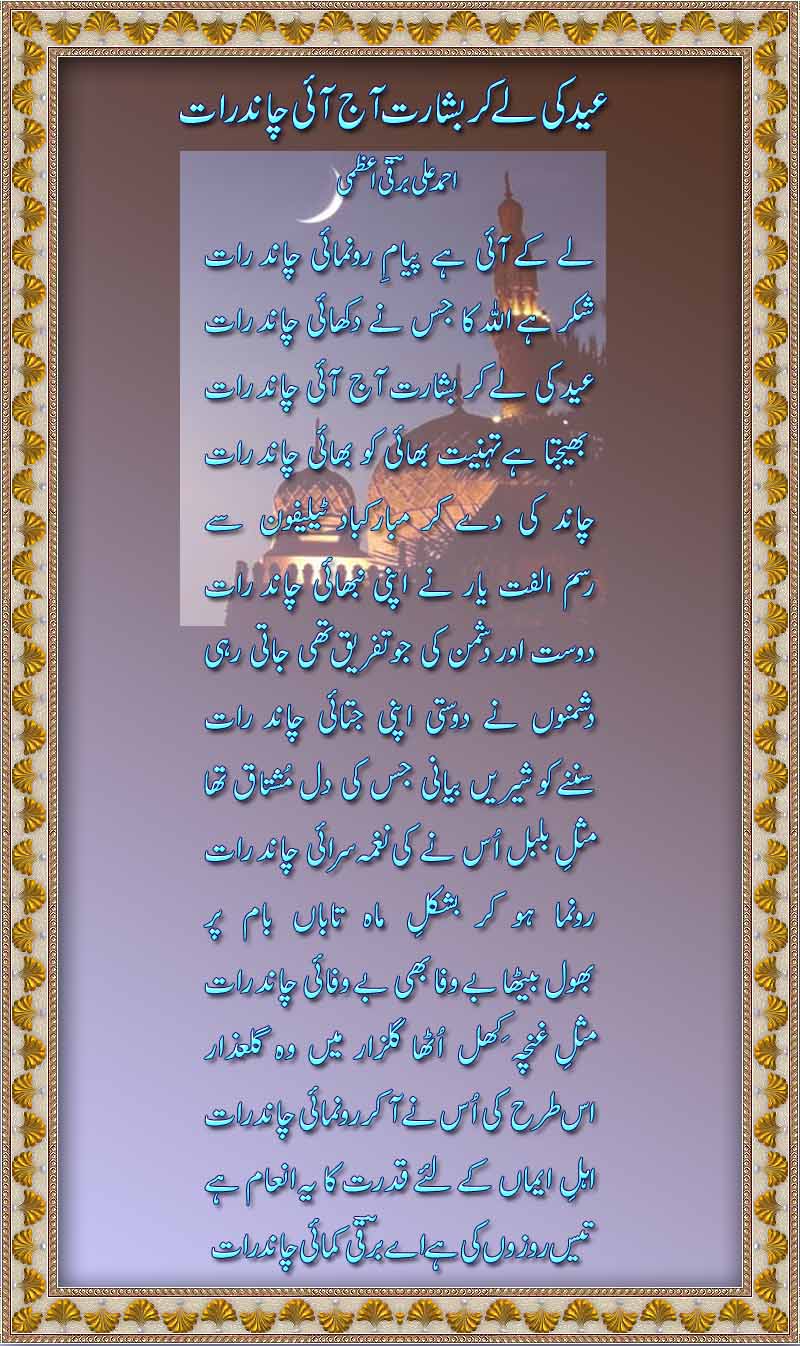 عید کی لے کر بشارت آج آئی چاند رات
احمد علی برقؔی اعظمی
لے کے آئی ہے پیامِ رونمائی چاند رات
شکر ہے اللہ کا جس نے دکھائی چاند رات
عید کی لے کر بشارت آج آئی چاند رات
بھیجتا ہے تہنیت بھائی کو بھائی چاند رات
چاند کی دے کر مبارکباد ٹیلیفون سے
رسم الفت یار نے اپنی نبھائی چاند رات
دوست اور دشمن کی جو تفریق تھی جاتی رہی
دشمنوں نے دوستی اپنی جتائی چاند رات
سننے کو شیریں بیانی جس کی دل مُشتاق تھا
مثلِ بلبل اُس نے کی نغمہ سرائی چاند رات
رونما ہو کر بشکلِ ماہ تاباں بام پر
بھول بیٹھا بے وفا بھی بے وفائی چاند رات
مثلِ غنچہ کِھل اُٹھا گلزار میں وہ گلعذار
اس طرح کی اُس نے آ کر رونمائی چاند رات
اہلِ ایماں کے لئے قدرت کا یہ انعام ہے
تیس روزوں کی ہے اے برقؔی کمائی چاند رات